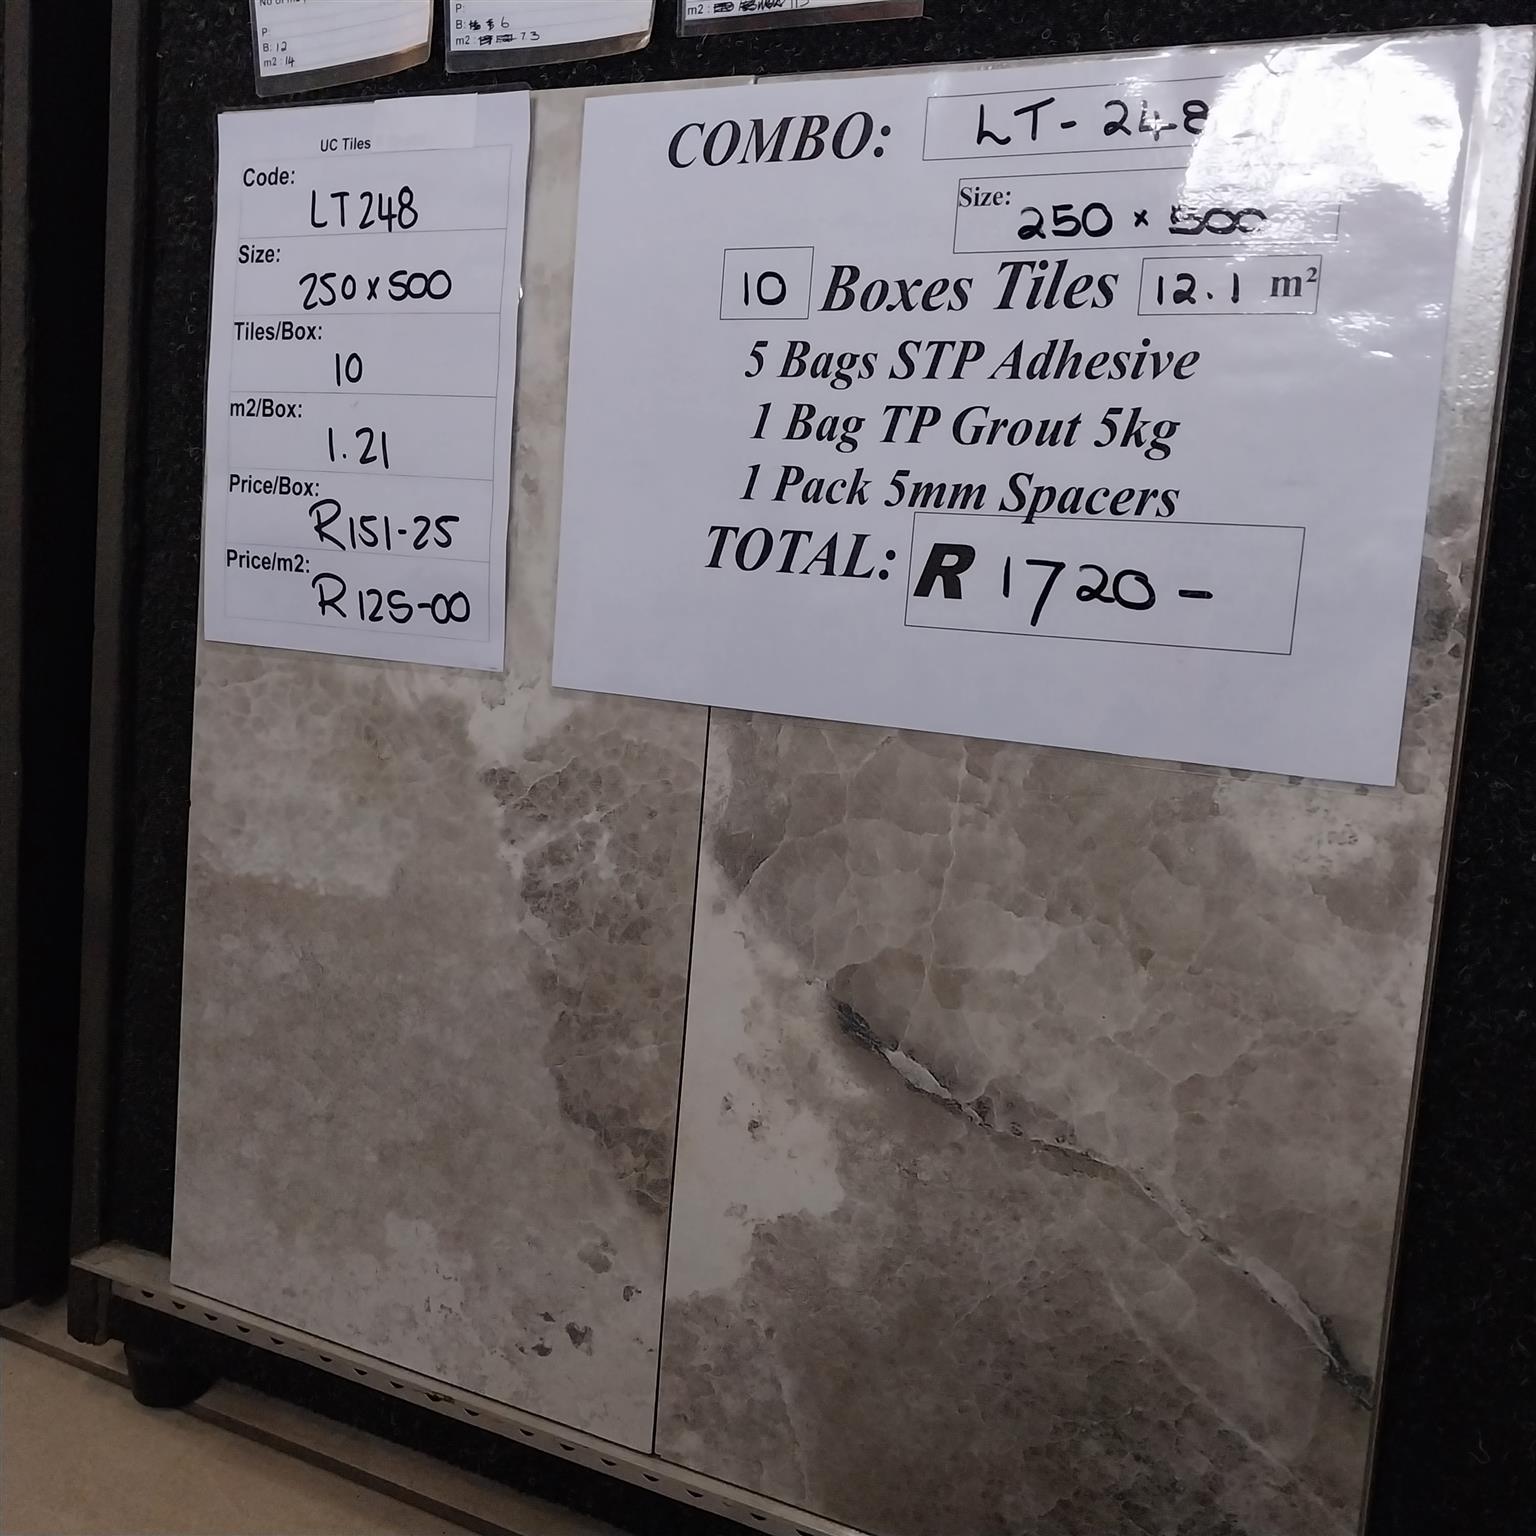 P:
B: 12
m2: 14
P:
B: 6
m2: 7.3
m2:
UC Tiles
Code:
LT248
Size:
250 x 500
Tiles/Box:
10
m2/Box:
1.21
Price/Box:
R151-25
Price/m2:
R125-00
COMBO: LT-248
Size: 250 x 500
10 Boxes Tiles 12.1 m²
5 Bags STP Adhesive
1 Bag TP Grout 5kg
1 Pack 5mm Spacers
TOTAL: R 1720-